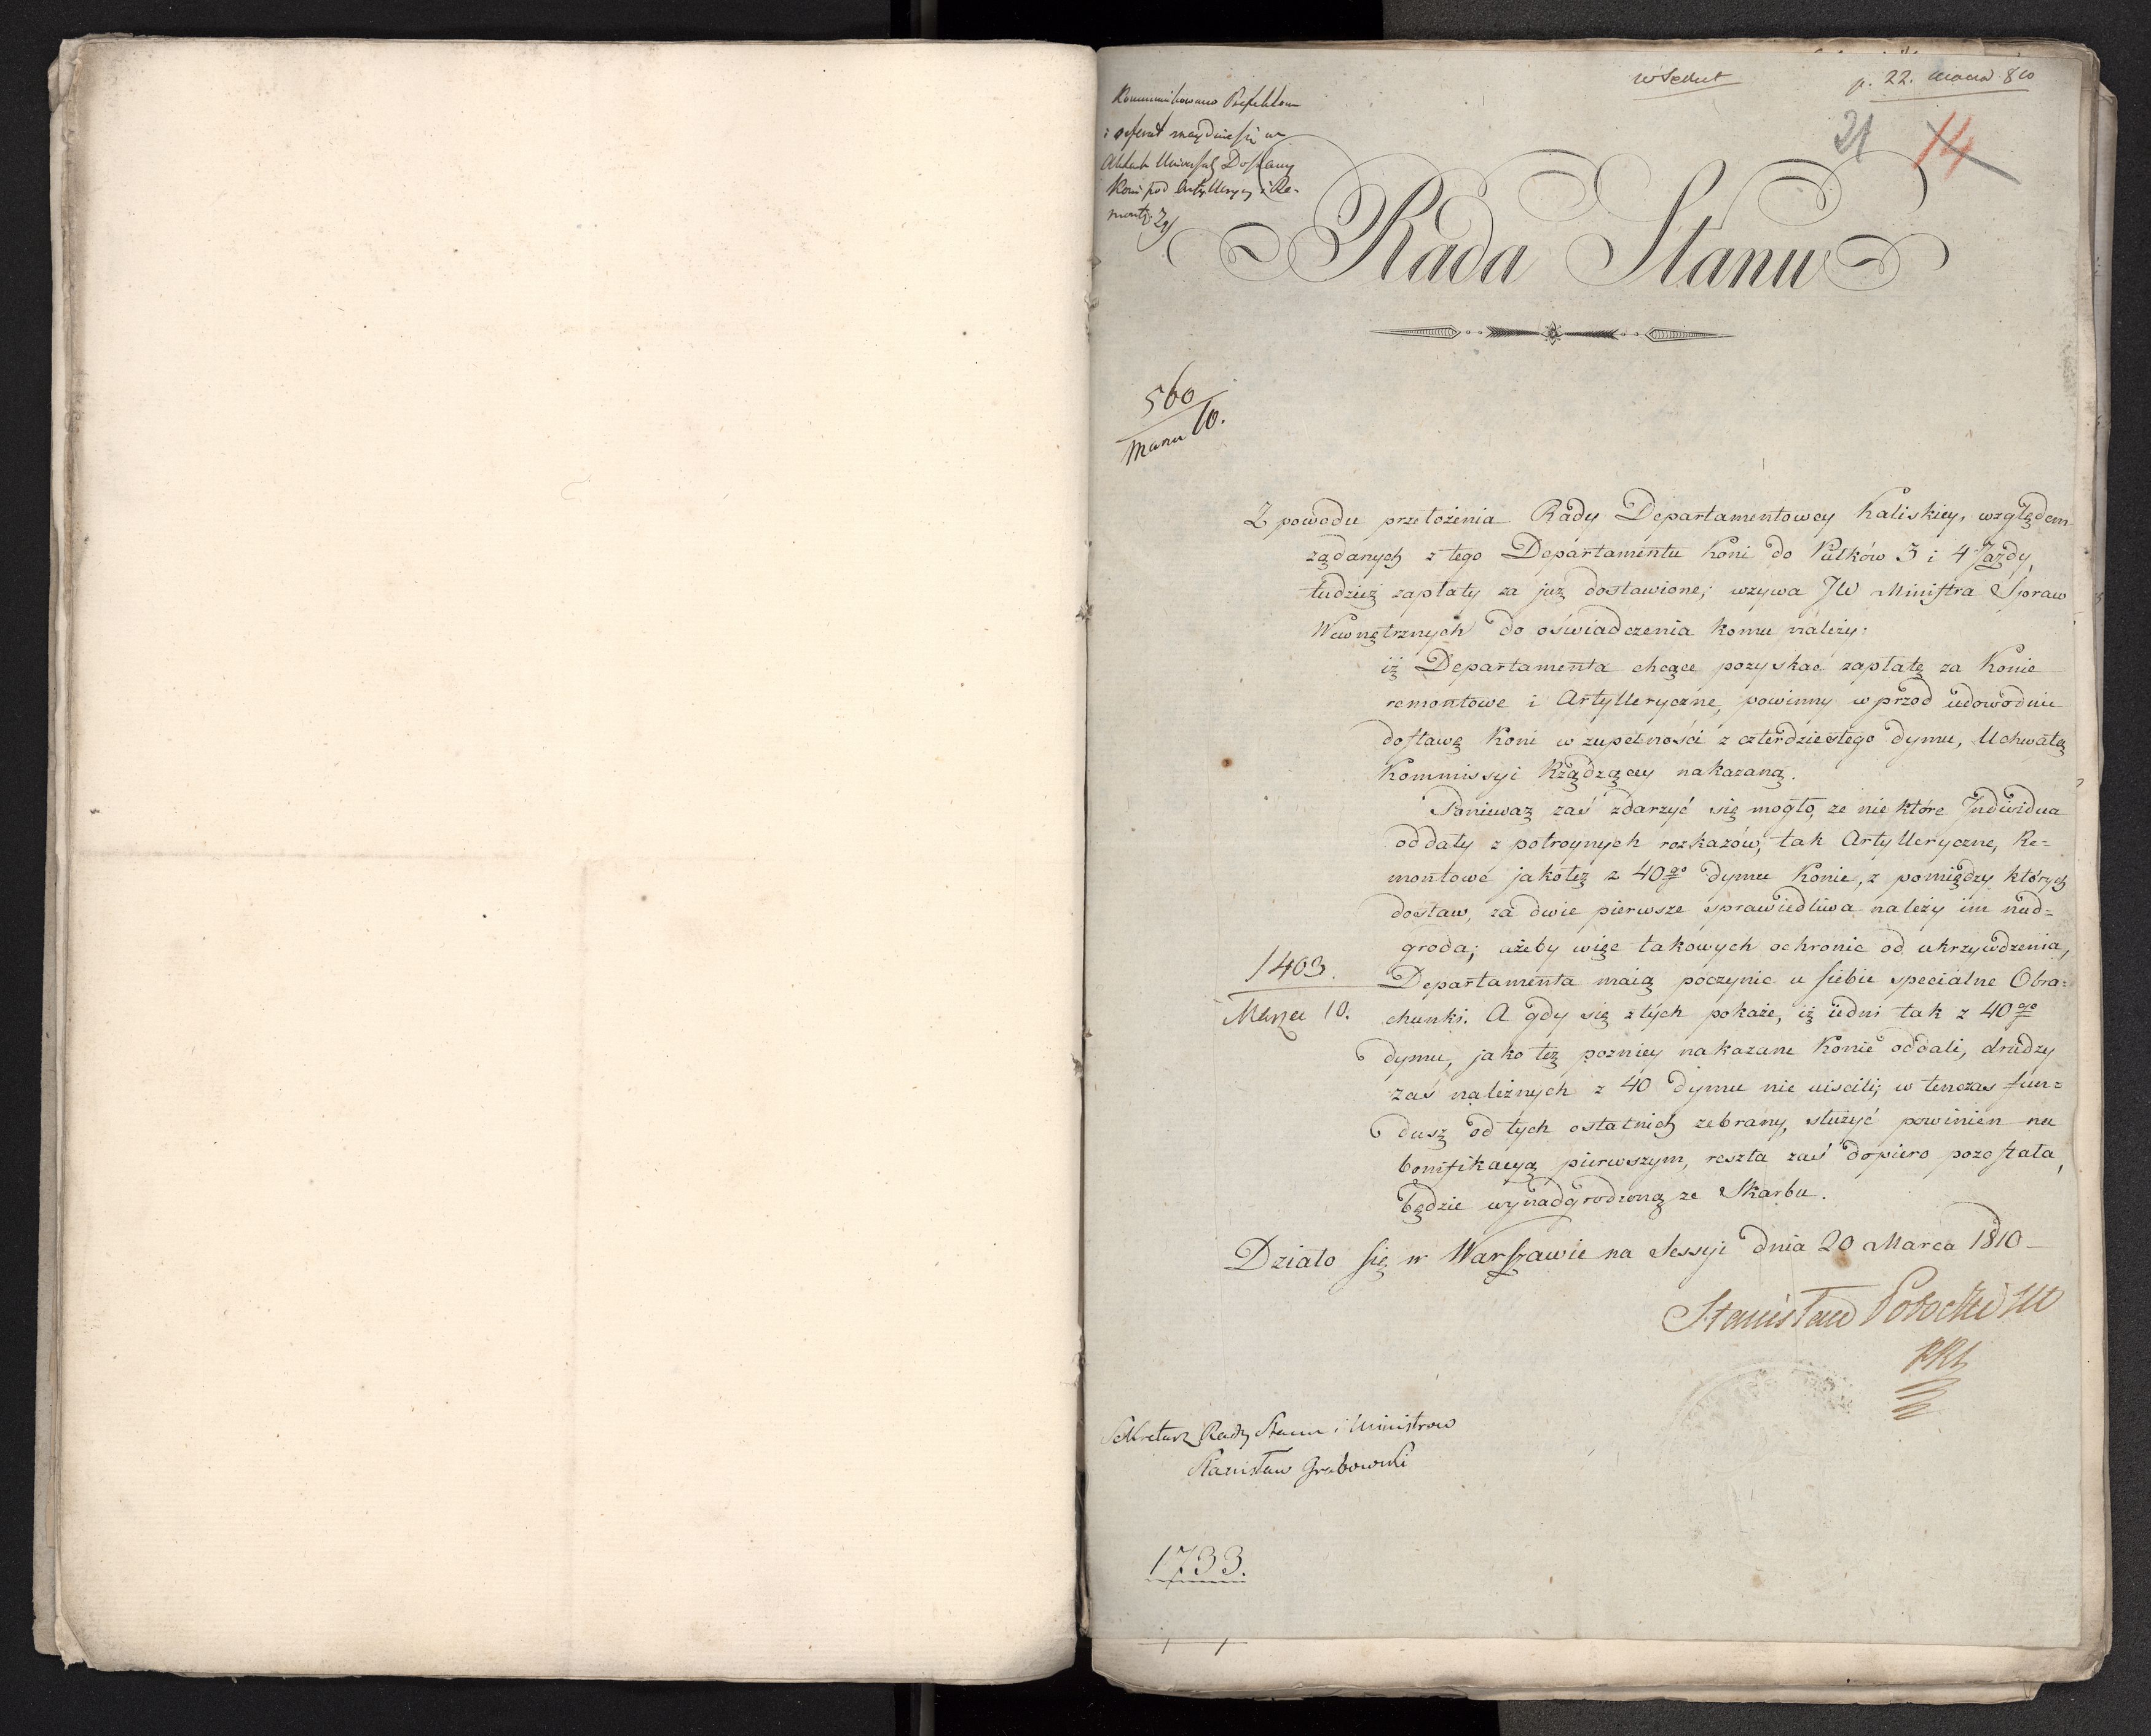 w Sekret
p. 22. Marca 810
Kommunikowano Prefektom
i referat znayduie się w
Aktach Uniwersal. Dostawy
Koni pod Artylleryą i Re-
montę.
21 14
Rada Stanu
560
Marca 10.
Z powodu przełożenia Rady Departamentowey Kaliskiey, względem
ządanych z tego Departamentu Koni do Pułków 3 i 4 Jazdy,
tudzież zapłaty za już dostawione; wzywa JW Ministra Spraw
Wewnętrznych do oświadczenia komu należy:
iż Departamenta chcące pozyskać zapłatę za Konie
remontowe i Artylleryczne, powinny w przod udowodnić
dostawę Koni w zupełności z czterdziestego dymu, Uchwałą
Kommissyi Rządzącey nakazaną.
Ponieważ zaś zdarzyć się mogło, ze nie które Individua
oddały z potroynych rozkazów, tak Artylleryczne, Re=
montowe jakoteż z 40go dymu Konie, z pomiędzy których
dostaw, za dwie pierwsze sprawiedliwa należy im nad=
groda; ażeby więc takowych ochronić od ukrzywdzenia,
1403.
Departamenta maią poczynić u siebie specialne Obra=
Marca 10.
chunki. A gdy się z tych pokaże, iż iedni tak z 40go
dymu, jako też pozniey nakazane Konie oddali, drudzy
zaś należnych z 40 dymu nie uiscili; w tenczas fun=
dusz od tych ostatnich zebrany, służyć powinien na
bonifikacyą pierwszym, reszta zaś dopiero pozostała,
będzie wynadgrodzoną ze Skarbu.
Działo się w Warszawie na Sessyi dnia 20 Marca 1810
Stanisław Potocki
Sekretarz Rady Stanu i Ministrow
Stanisław Grabowski
1733.